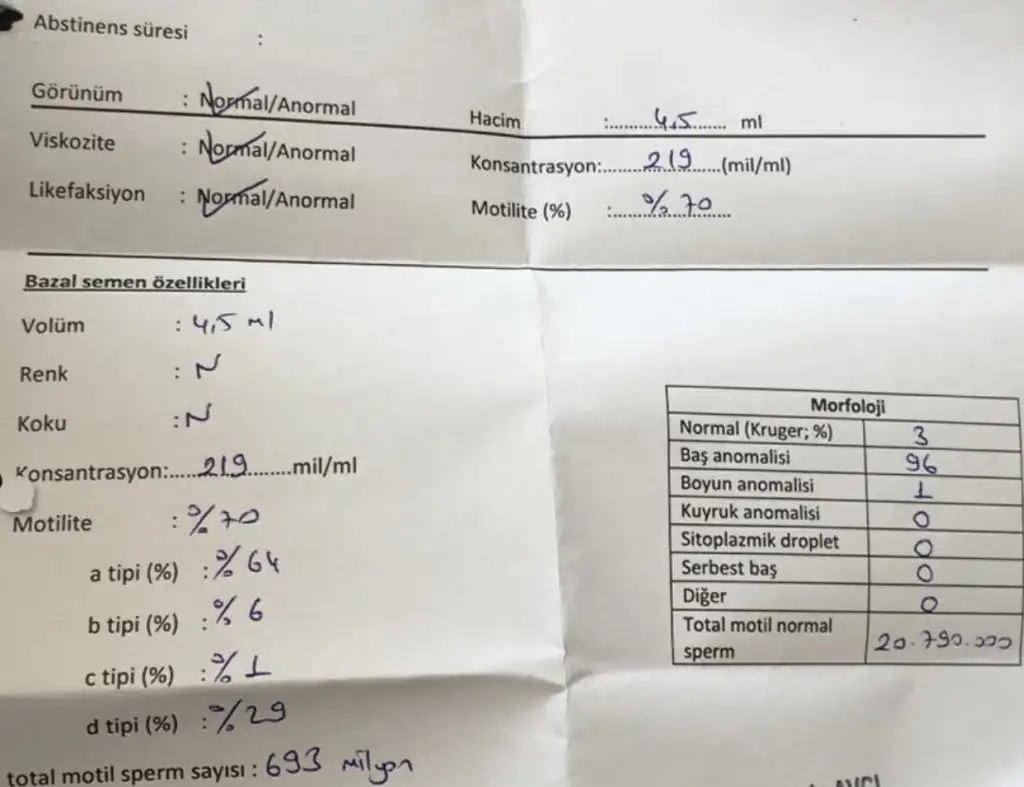 Abstinens süresi :
Görünüm : Normal/Anormal
Hacim :............4,5....... ml
Viskozite : Normal/Anormal
Konsantrasyon:........219.....(mil/ml)
Likefaksiyon : Normal/Anormal
Motilite (%) :.......% 70........
Bazal semen özellikleri
Volüm : 4,5 ml
Renk : N
Koku : N
Konsantrasyon:.....219........mil/ml
Motilite : %70
a tipi (%) : % 64
b tipi (%) : % 6
c tipi (%) : % 1
d tipi (%) : %29
total motil sperm sayısı : 693 milyon
Morfoloji
Normal (Kruger; %) 3
Baş anomalisi 96
Boyun anomalisi 1
Kuyruk anomalisi 0
Sitoplazmik droplet 0
Serbest baş 0
Diğer 0
Total motil normal
sperm 20.790.000